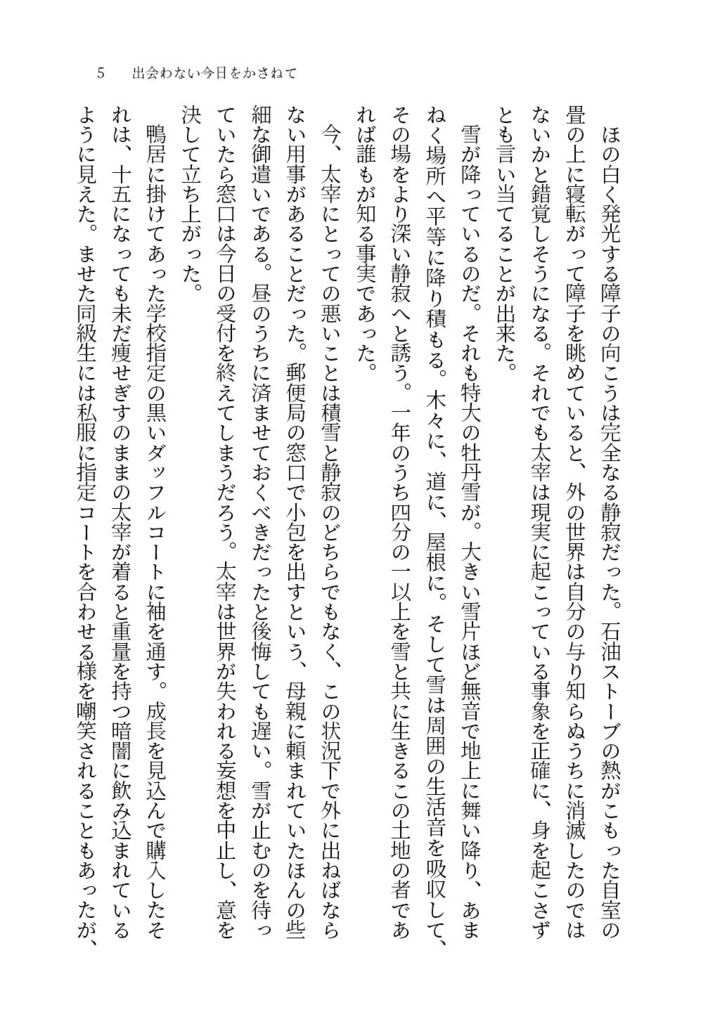 5 出会わない今日をかさねて
ほの白く発光する障子の向こうは完全なる静寂だった。石油ストーブの熱がこもった自室の
畳の上に寝転がって障子を眺めていると、外の世界は自分の与り知らぬうちに消滅したのでは
ないかと錯覚しそうになる。それでも太宰は現実に起こっている事象を正確に、身を起こさず
とも言い当てることが出来た。
雪が降っているのだ。それも特大の牡丹雪が。大きい雪片ほど無音で地上に舞い降り、あま
ねく場所へ平等に降り積もる。木々に、道に、屋根に。そして雪は周囲の生活音を吸収して、
その場をより深い静寂へと誘う。一年のうち四分の一以上を雪と共に生きるこの土地の者であ
れば誰もが知る事実であった。
今、太宰にとっての悪いことは積雪と静寂のどちらでもなく、この状況下で外に出ねばなら
ない用事があることだった。郵便局の窓口で小包を出すという、母親に頼まれていたほんの些
細な御遣いである。昼のうちに済ませておくべきだったと後悔しても遅い。雪が止むのを待っ
ていたら窓口は今日の受付を終えてしまうだろう。太宰は世界が失われる妄想を中止し、意を
決して立ち上がった。
鴨居に掛けてあった学校指定の黒いダッフルコートに袖を通す。成長を見込んで購入したそ
れは、十五になっても未だ痩せぎすのままの太宰が着ると重量を持つ暗闇に飲み込まれている
ように見えた。ませた同級生には私服に指定コートを合わせる様を嘲笑されることもあったが、